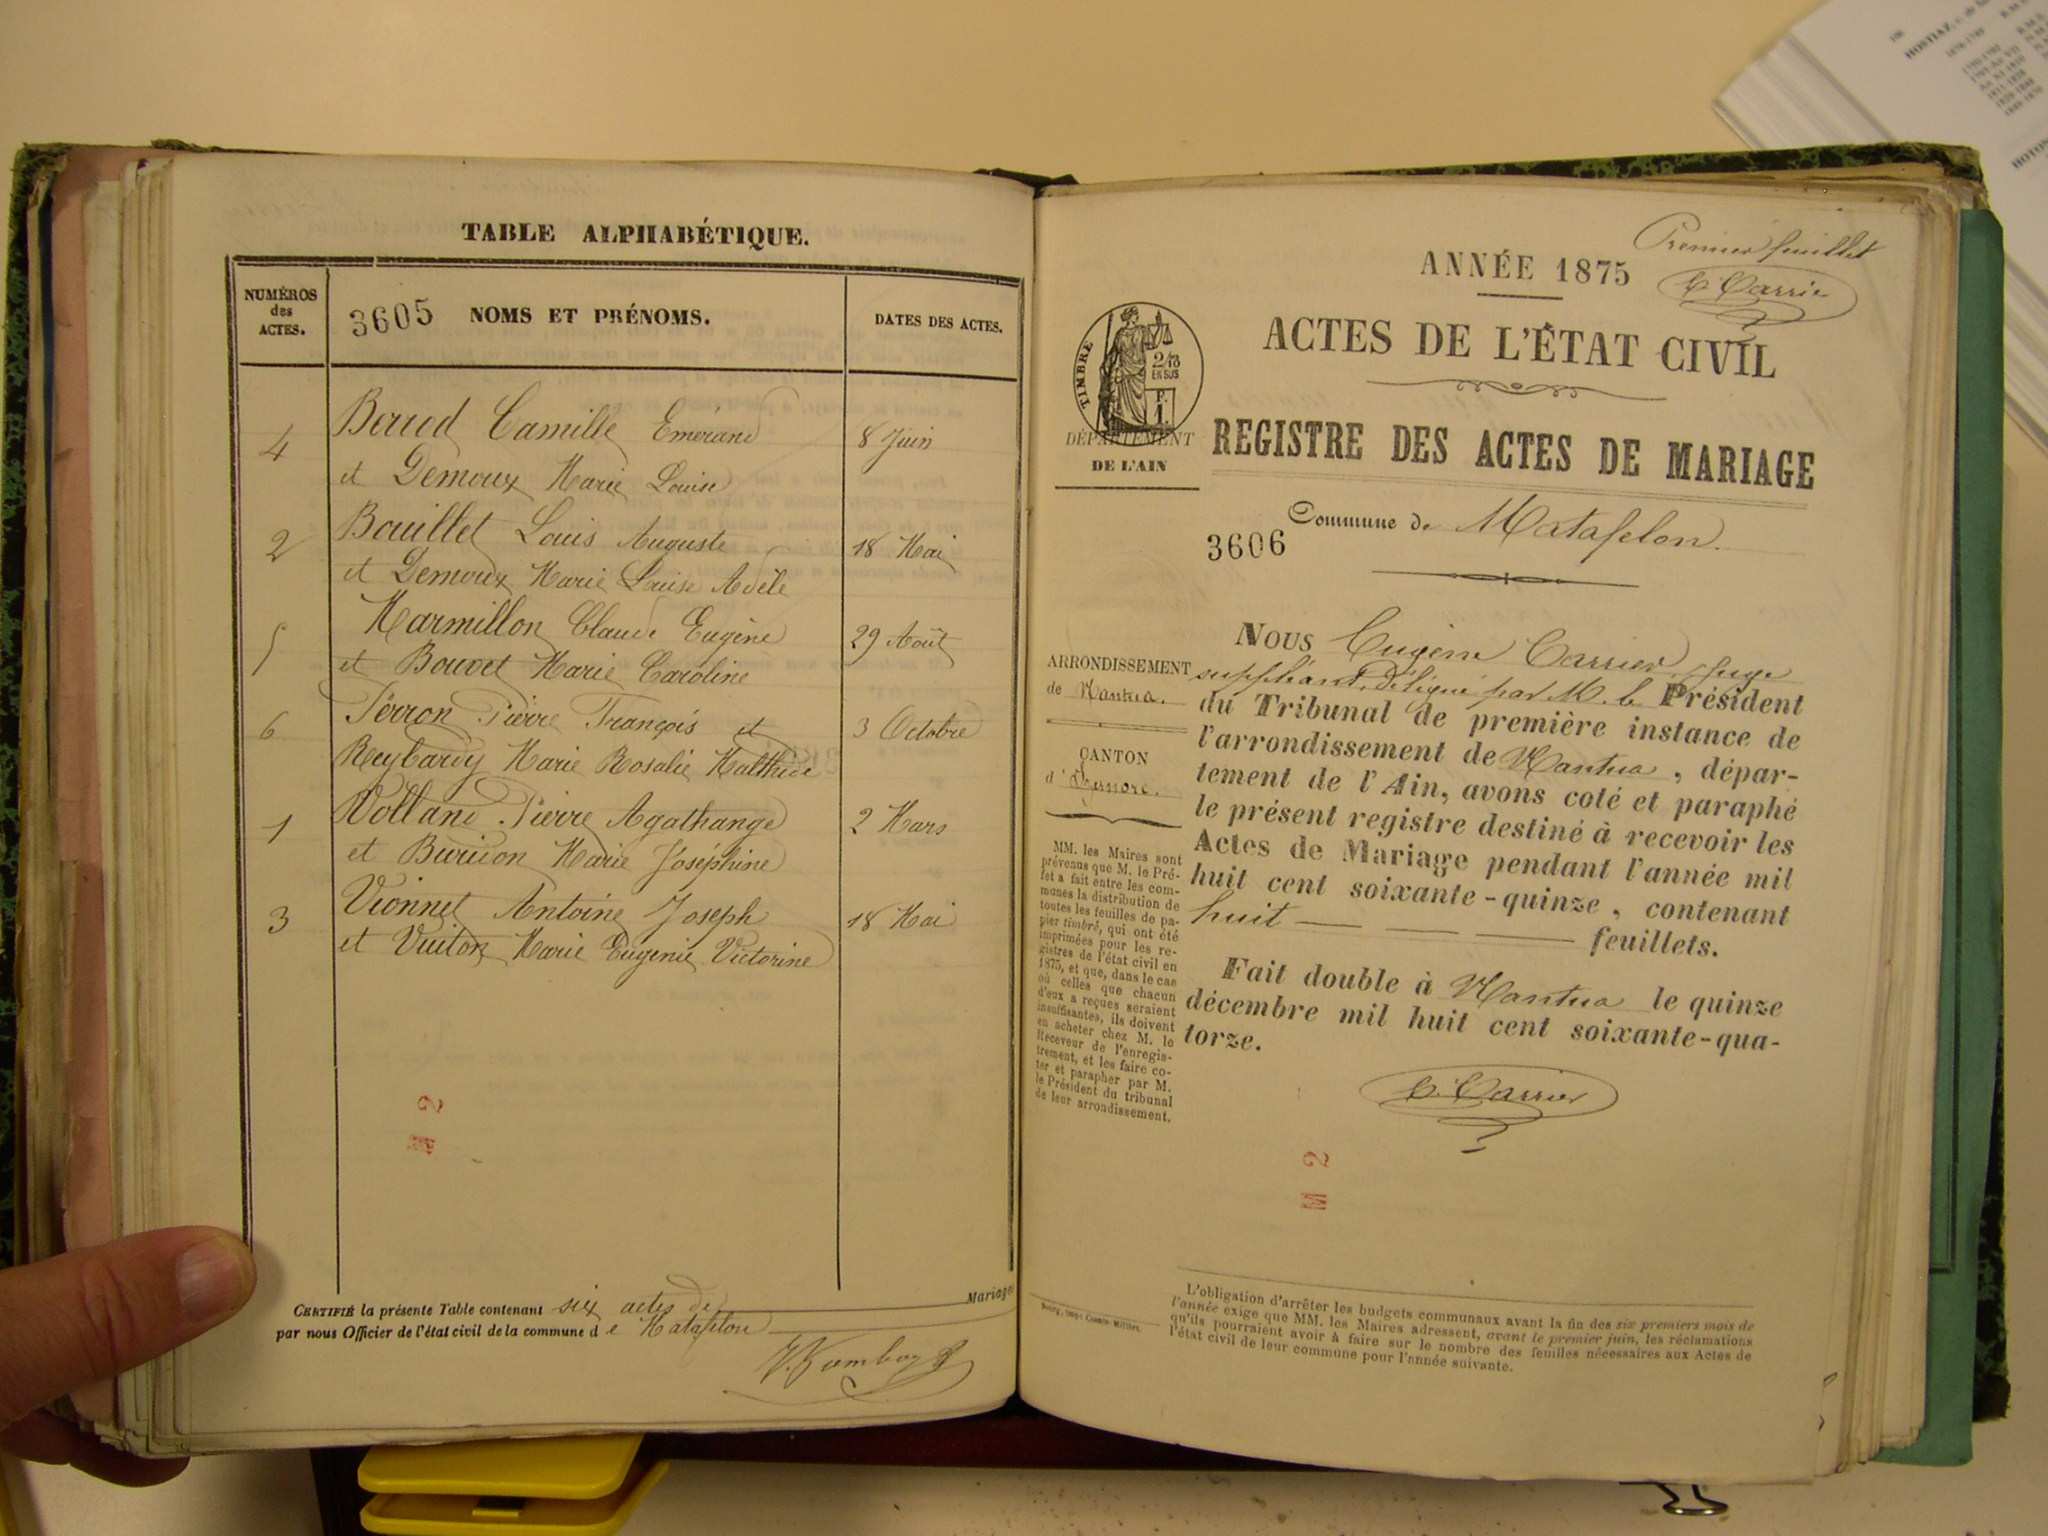 TABLE ALPHABÉTIQUE.
NUMÉROS
des
ACTES.
3605 NOMS ET PRÉNOMS.
DATES DES ACTES.
4 Berrod Camille Emérand 8 Juin
et Demoux Marie Louise
2 Bouillet Louis Auguste 18 Mai
et Demoux Marie Louise Adèle
5 Marmillon Claude Eugène 29 Août
et Bouvet Marie Caroline
6 Perron Pierre François et 3 Octobre
Reybardy Marie Rosalie Malthide
1 Volland Pierre Agathange 2 Mars
et Marie Joséphine
3 Vionnet Antoine Joseph 18 Mai
et Vuiton Marie Eugenie Victorine
M 2
CERTIFIÉ la présente Table contenant six actes de Mariage
par nous Officier de l'état civil de la commune de Matafelon
Premier feuillet
E. Carrier
ANNÉE 1875
ACTES DE L'ÉTAT CIVIL
TIMBRE
2/10
EN SUS
F.
1.
DÉPARTEMENT
DE L'AIN
REGISTRE DES ACTES DE MARIAGE
Commune de Matafelon.
3606
ARRONDISSEMENT
de Nantua.
CANTON
d'Izernore.
MM. les Maires sont
prévenus que M. le Pré-
fet a fait entre les com-
munes la distribution de
toutes les feuilles de pa-
pier timbré, qui ont été
imprimées pour les re-
gistres de l'état civil en
1875, et que, dans le cas
où celles que chacun
d'eux a reçues seraient
insuffisantes, ils doivent
en acheter chez M. le
Receveur de l'enregis-
trement, et les faire co-
ter et parapher par M.
le Président du tribunal
de leur arrondissement.
NOUS Eugène Carrier, Juge
suppléant, délégué par M. le Président
du Tribunal de première instance de
l'arrondissement de Nantua, dépar-
tement de l'Ain, avons coté et paraphé
le présent registre destiné à recevoir les
Actes de Mariage pendant l'année mil
huit cent soixante-quinze, contenant
huit feuillets.
Fait double à Nantua le quinze
décembre mil huit cent soixante-qua-
torze.
E. Carrier
M 2
L'obligation d'arrêter les budgets communaux avant la fin des six premiers mois de
l'année exige que MM. les Maires adressent, avant le premier juin, les réclamations
qu'ils pourraient avoir à faire sur le nombre des feuilles nécessaires aux Actes de
l'état civil de leur commune pour l'année suivante.